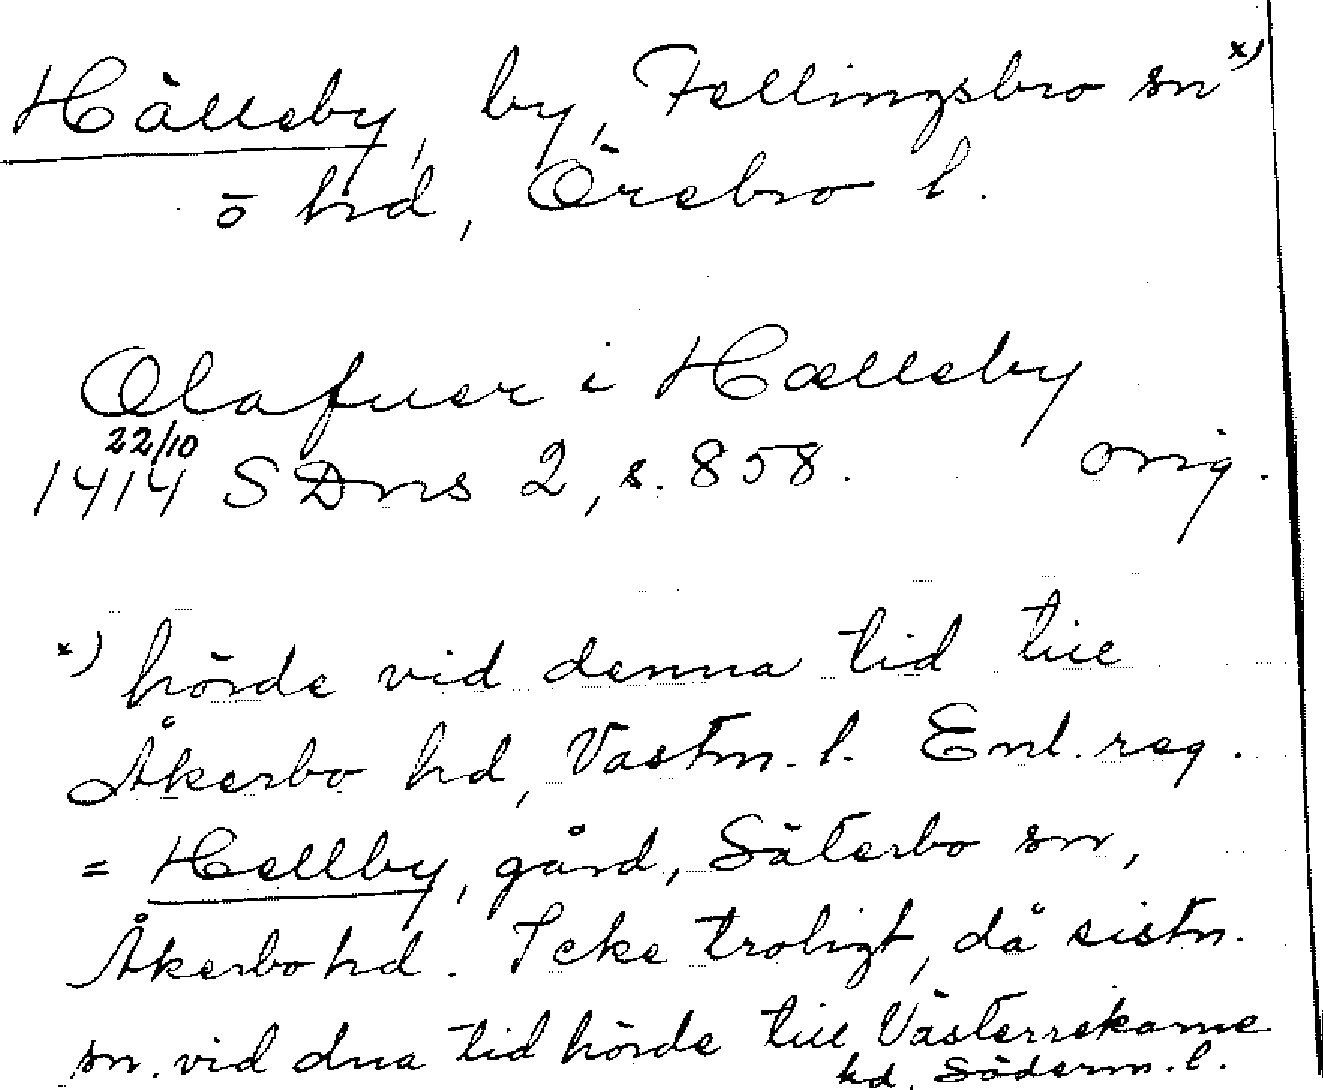 Hälleby, by, Fellingsbro sn x)
ō hd, Örebro l.
Olafuer i Hælleby
22/10
1414 SDns 2, s. 858. orig.
x) hörde vid denna tid till
Åkerbo hd, Västm. l. Enl. reg.
= Hellby, gård, Säterbo sn,
Åkerbo hd. Icke troligt, då sistn.
sn. vid dna tid hörde till Västerrekarne
hd, Söderm. l.